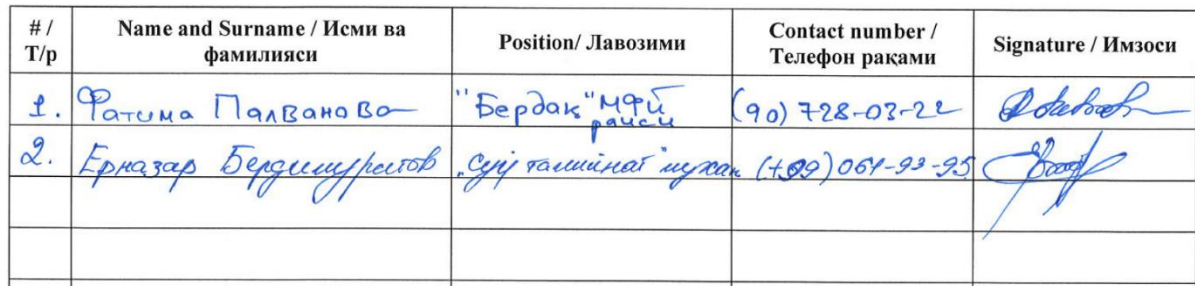 # / Т/р Name and Surname / Исми ва фамилияси Position/ Лавозими Contact number / Телефон рақами Signature / Имзоси
1. Фатима Палванова "Бердақ" МФЙ раиси (90) 728-03-22
2. Ерназар Бердимуратов „Сув таминот"